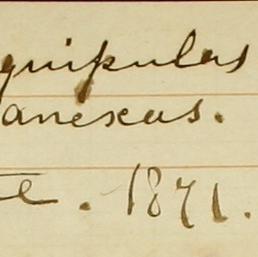 quipulas
anexas.
te. 1871.